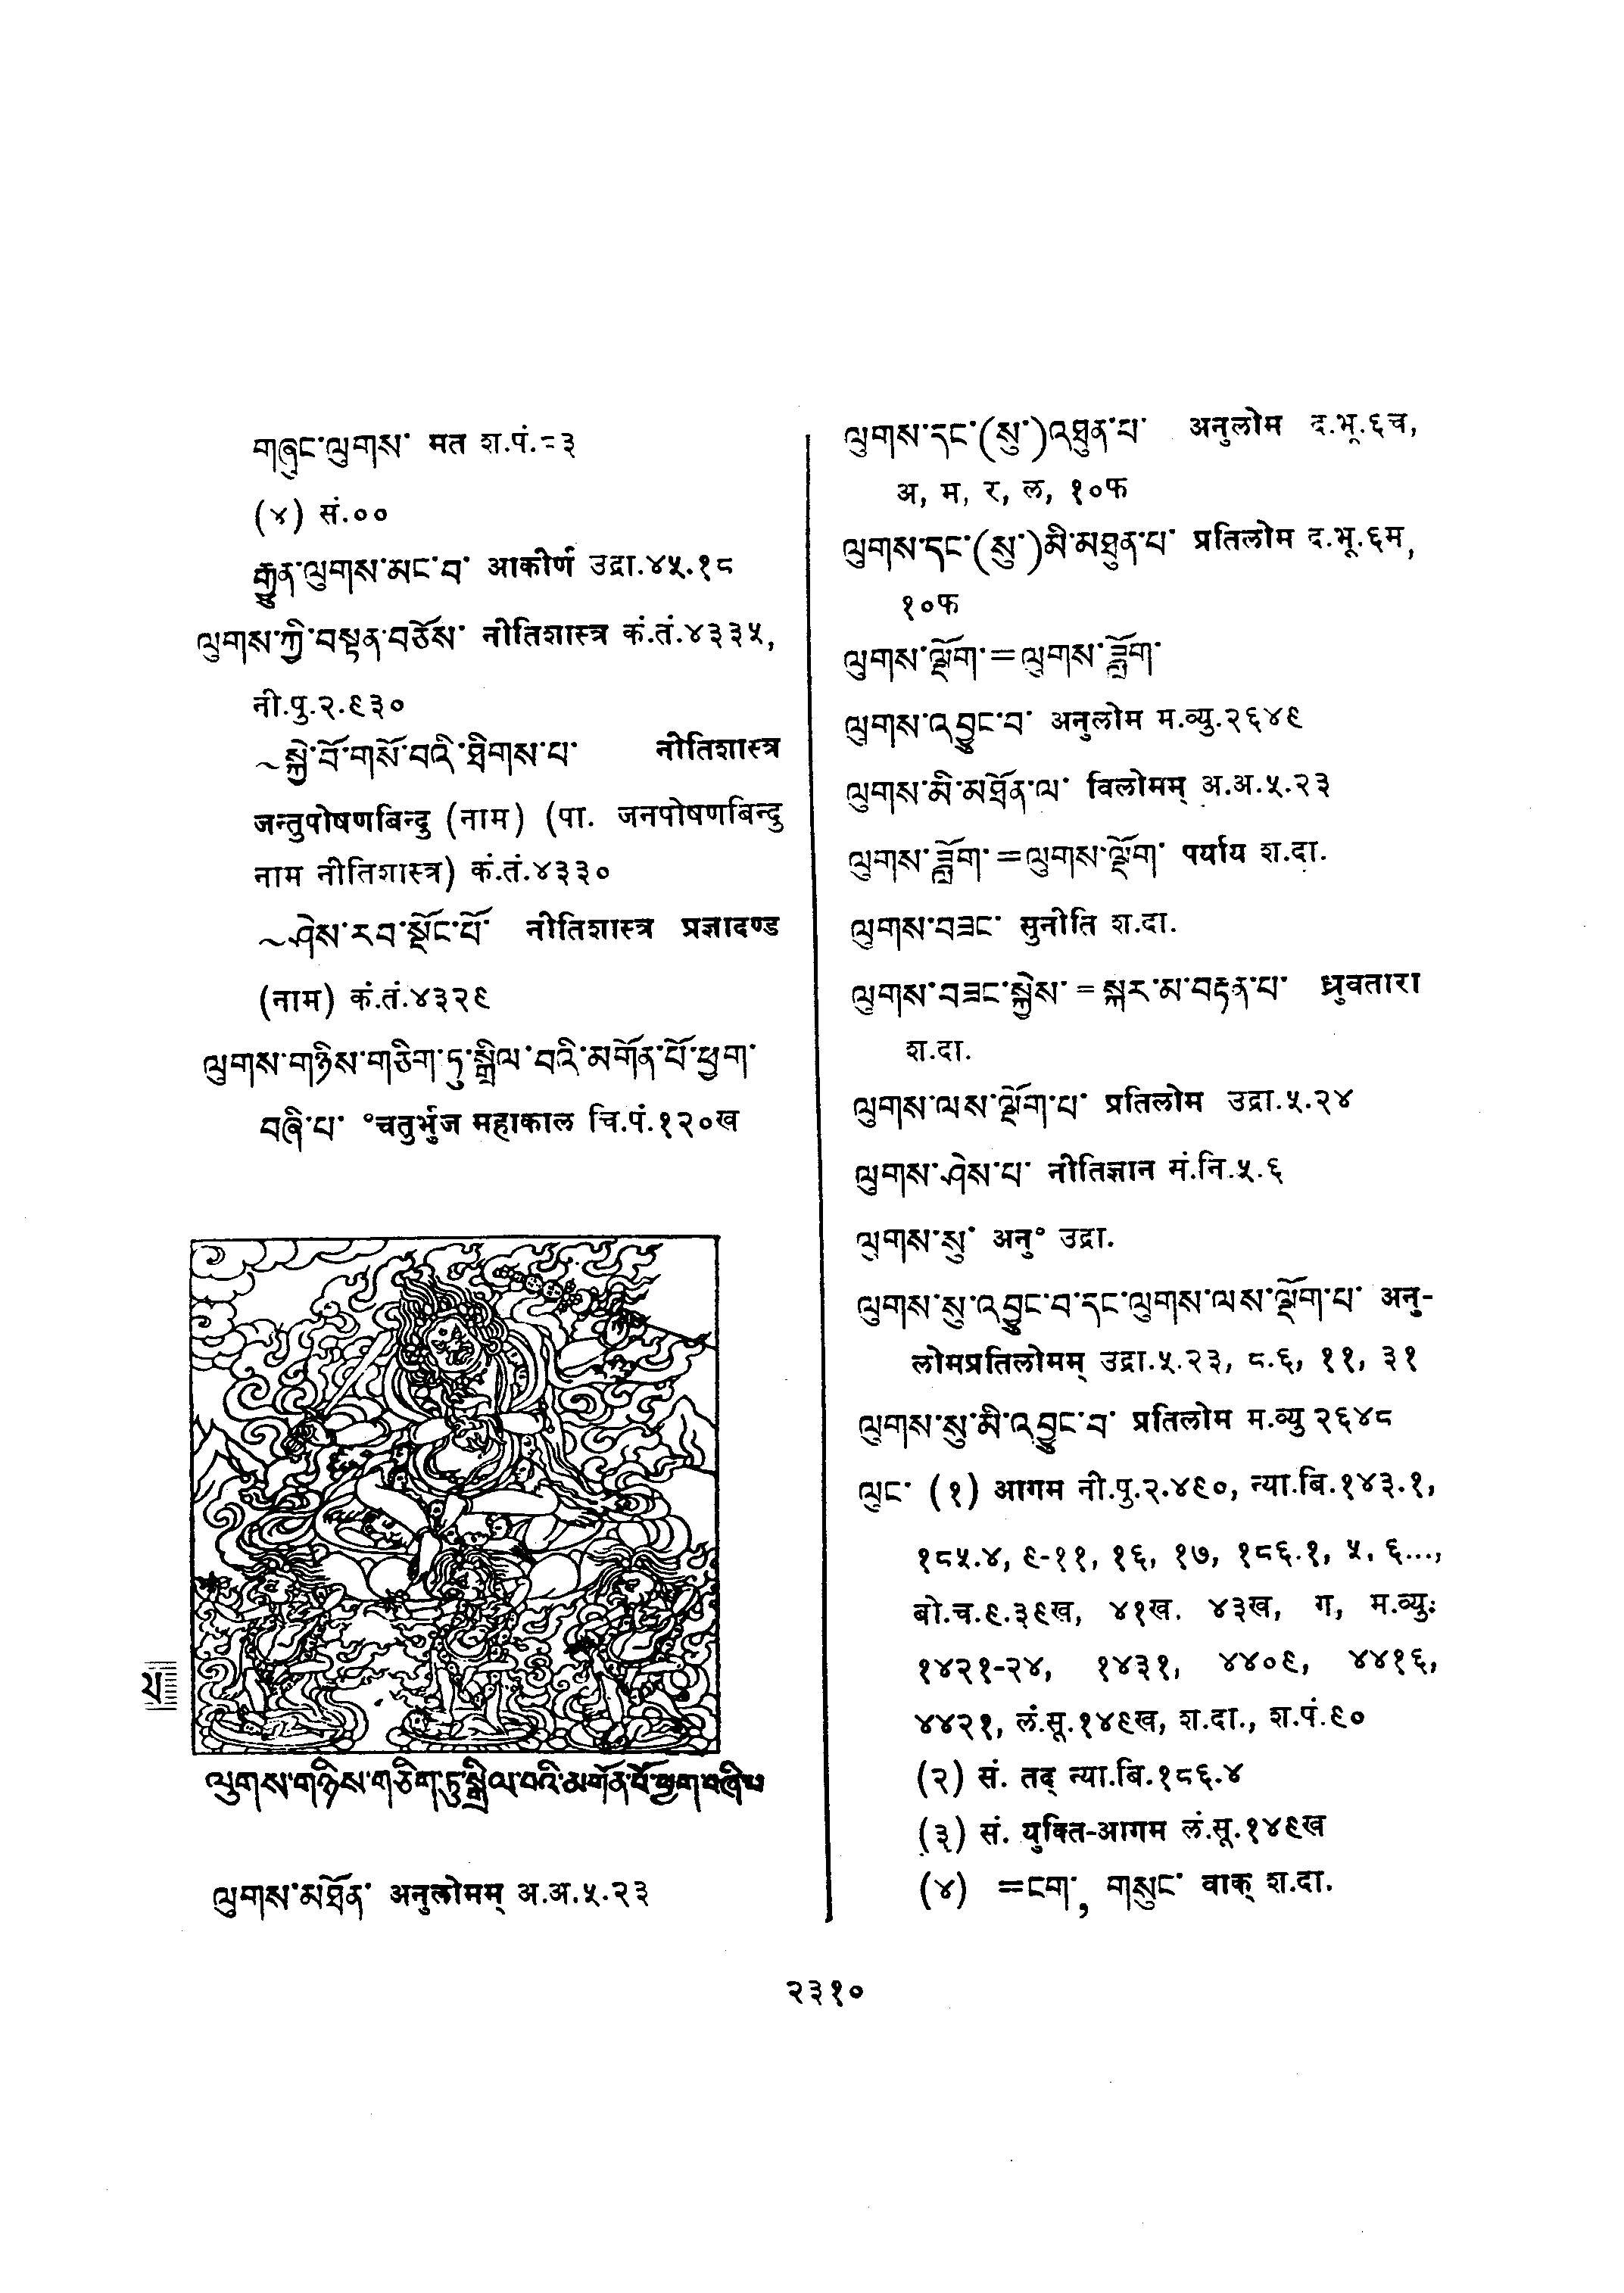 གཞུང་ལུགས་ मत श.पं.=३
(४) सं.००
རྒྱུན་ལུགས་མང་བ་ आकीर्ण उद्रा.४५.१८
ལུགས་ཀྱི་བསྟན་བཅོས་ नीतिशास्त्र कं.तं.४३३५,
नी.पु.२.९३०
~སྐྱེ་བོ་གསོ་བའི་ཐིགས་པ་ नीतिशास्त्र
जन्तुपोषणबिन्दु (नाम) (पा. जनपोषणबिन्दु
नाम नीतिशास्त्र) कं.तं.४३३०
~ཤེས་རབ་སྡོང་པོ་ नीतिशास्त्र प्रज्ञादण्ड
(नाम) कं.तं.४३२९
ལུགས་གཉིས་གཅིག་ཏུ་སྒྲིལ་བའི་མགོན་པོ་ཕྱག་
བཞི་པ་ °चतुर्भुज महाकाल चि.पं.१२०ख
ལུགས་གཉིས་གཅིག་ཏུ་སྒྲིལ་བའི་མགོན་པོ་ཕྱག་བཞི་པ
ལུགས་མཐོན་ अनुलोमम् अ.अ.५.२३
ལུགས་དང་(སུ་)འཐུན་པ་ अनुलोम द.भू.६च,
अ, म, र, ल, १०फ
ལུགས་དང་(སུ་)མི་མཐུན་པ་ प्रतिलोम द.भू.६म,
१०फ
ལུགས་ལྡོག་=ལུགས་ཟློག་
ལུགས་འབྱུང་བ་ अनुलोम म.व्यु.२६४९
ལུགས་མི་མཐོན་ལ་ विलोमम् अ.अ.५.२३
ལུགས་ཟློག་=ལུགས་ལྡོག་ पर्याय श.दा.
ལུགས་བཟང་ सुनीति श.दा.
ལུགས་བཟང་སྐྱེས་=སྐར་མ་བརྟན་པ་ ध्रुवतारा
श.दा.
ལུགས་ལས་ལྡོག་པ་ प्रतिलोम उद्रा.५.२४
ལུགས་ཤེས་པ་ नीतिज्ञान मं.नि.५.६
ལུགས་སུ་ अनु° उद्रा.
ལུགས་སུ་འབྱུང་བ་དང་ལུགས་ལས་ལྡོག་པ་ अनु-
लोमप्रतिलोमम् उद्रा.५.२३, ८.६, ११, ३१
ལུགས་སུ་མི་འབྱུང་བ་ प्रतिलोम म.व्यु २६४८
ལུང་ (१) आगम नी.पु.२.४९०, न्या.बि.१४३.१,
१८५.४, ९-११, १६, १७, १८६.१, ५, ६...,
बो.च.९.३९ख, ४१ख. ४३ख, ग, म.व्युः
१४२१-२४, १४३१, ४४०९, ४४१६,
४४२१, लं.सू.१४९ख, श.दा., श.पं.९०
(२) सं. तद् न्या.बि.१८६.४
(३) सं. युक्ति-आगम लं.सू.१४९ख
(४) =ངག་, གསུང་ वाक् श.दा.
२३१०